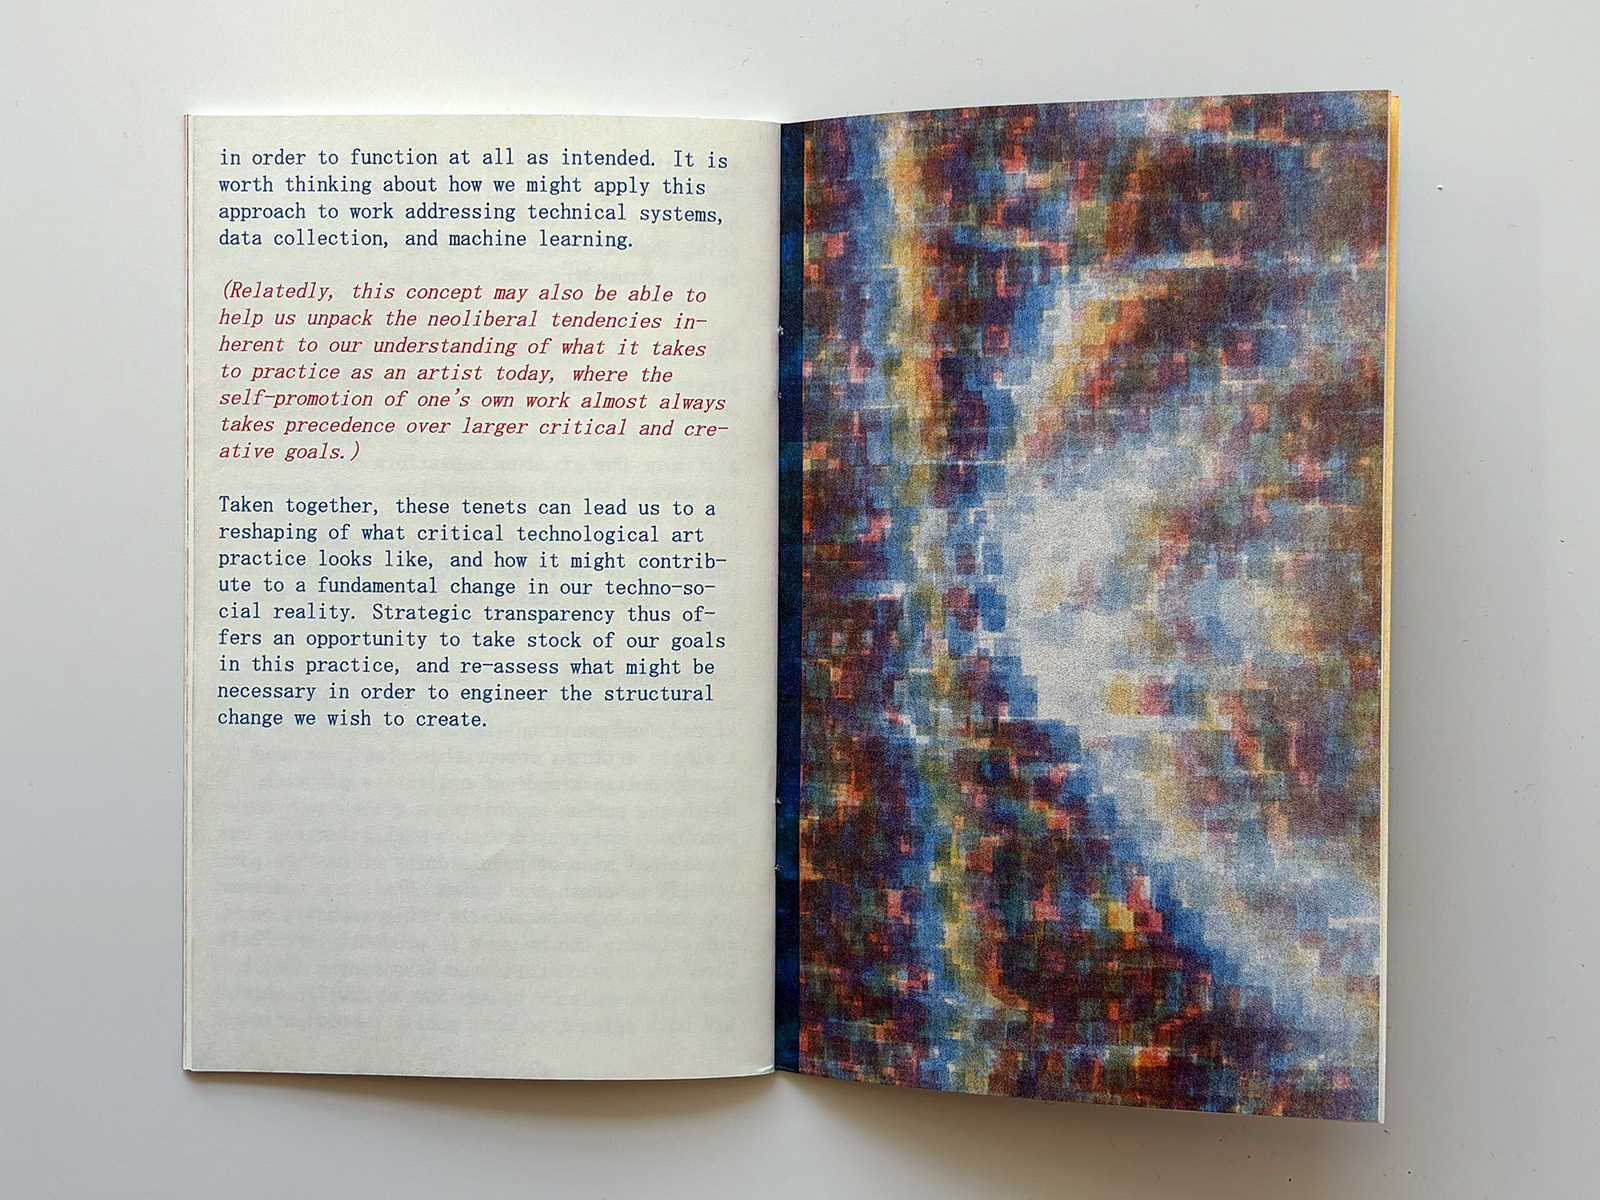 in order to function at all as intended. It is
worth thinking about how we might apply this
approach to work addressing technical systems,
data collection, and machine learning.
(Relatedly, this concept may also be able to
help us unpack the neoliberal tendencies in-
herent to our understanding of what it takes
to practice as an artist today, where the
self-promotion of one's own work almost always
takes precedence over larger critical and cre-
ative goals.)
Taken together, these tenets can lead us to a
reshaping of what critical technological art
practice looks like, and how it might contrib-
ute to a fundamental change in our techno-so-
cial reality. Strategic transparency thus of-
fers an opportunity to take stock of our goals
in this practice, and re-assess what might be
necessary in order to engineer the structural
change we wish to create.